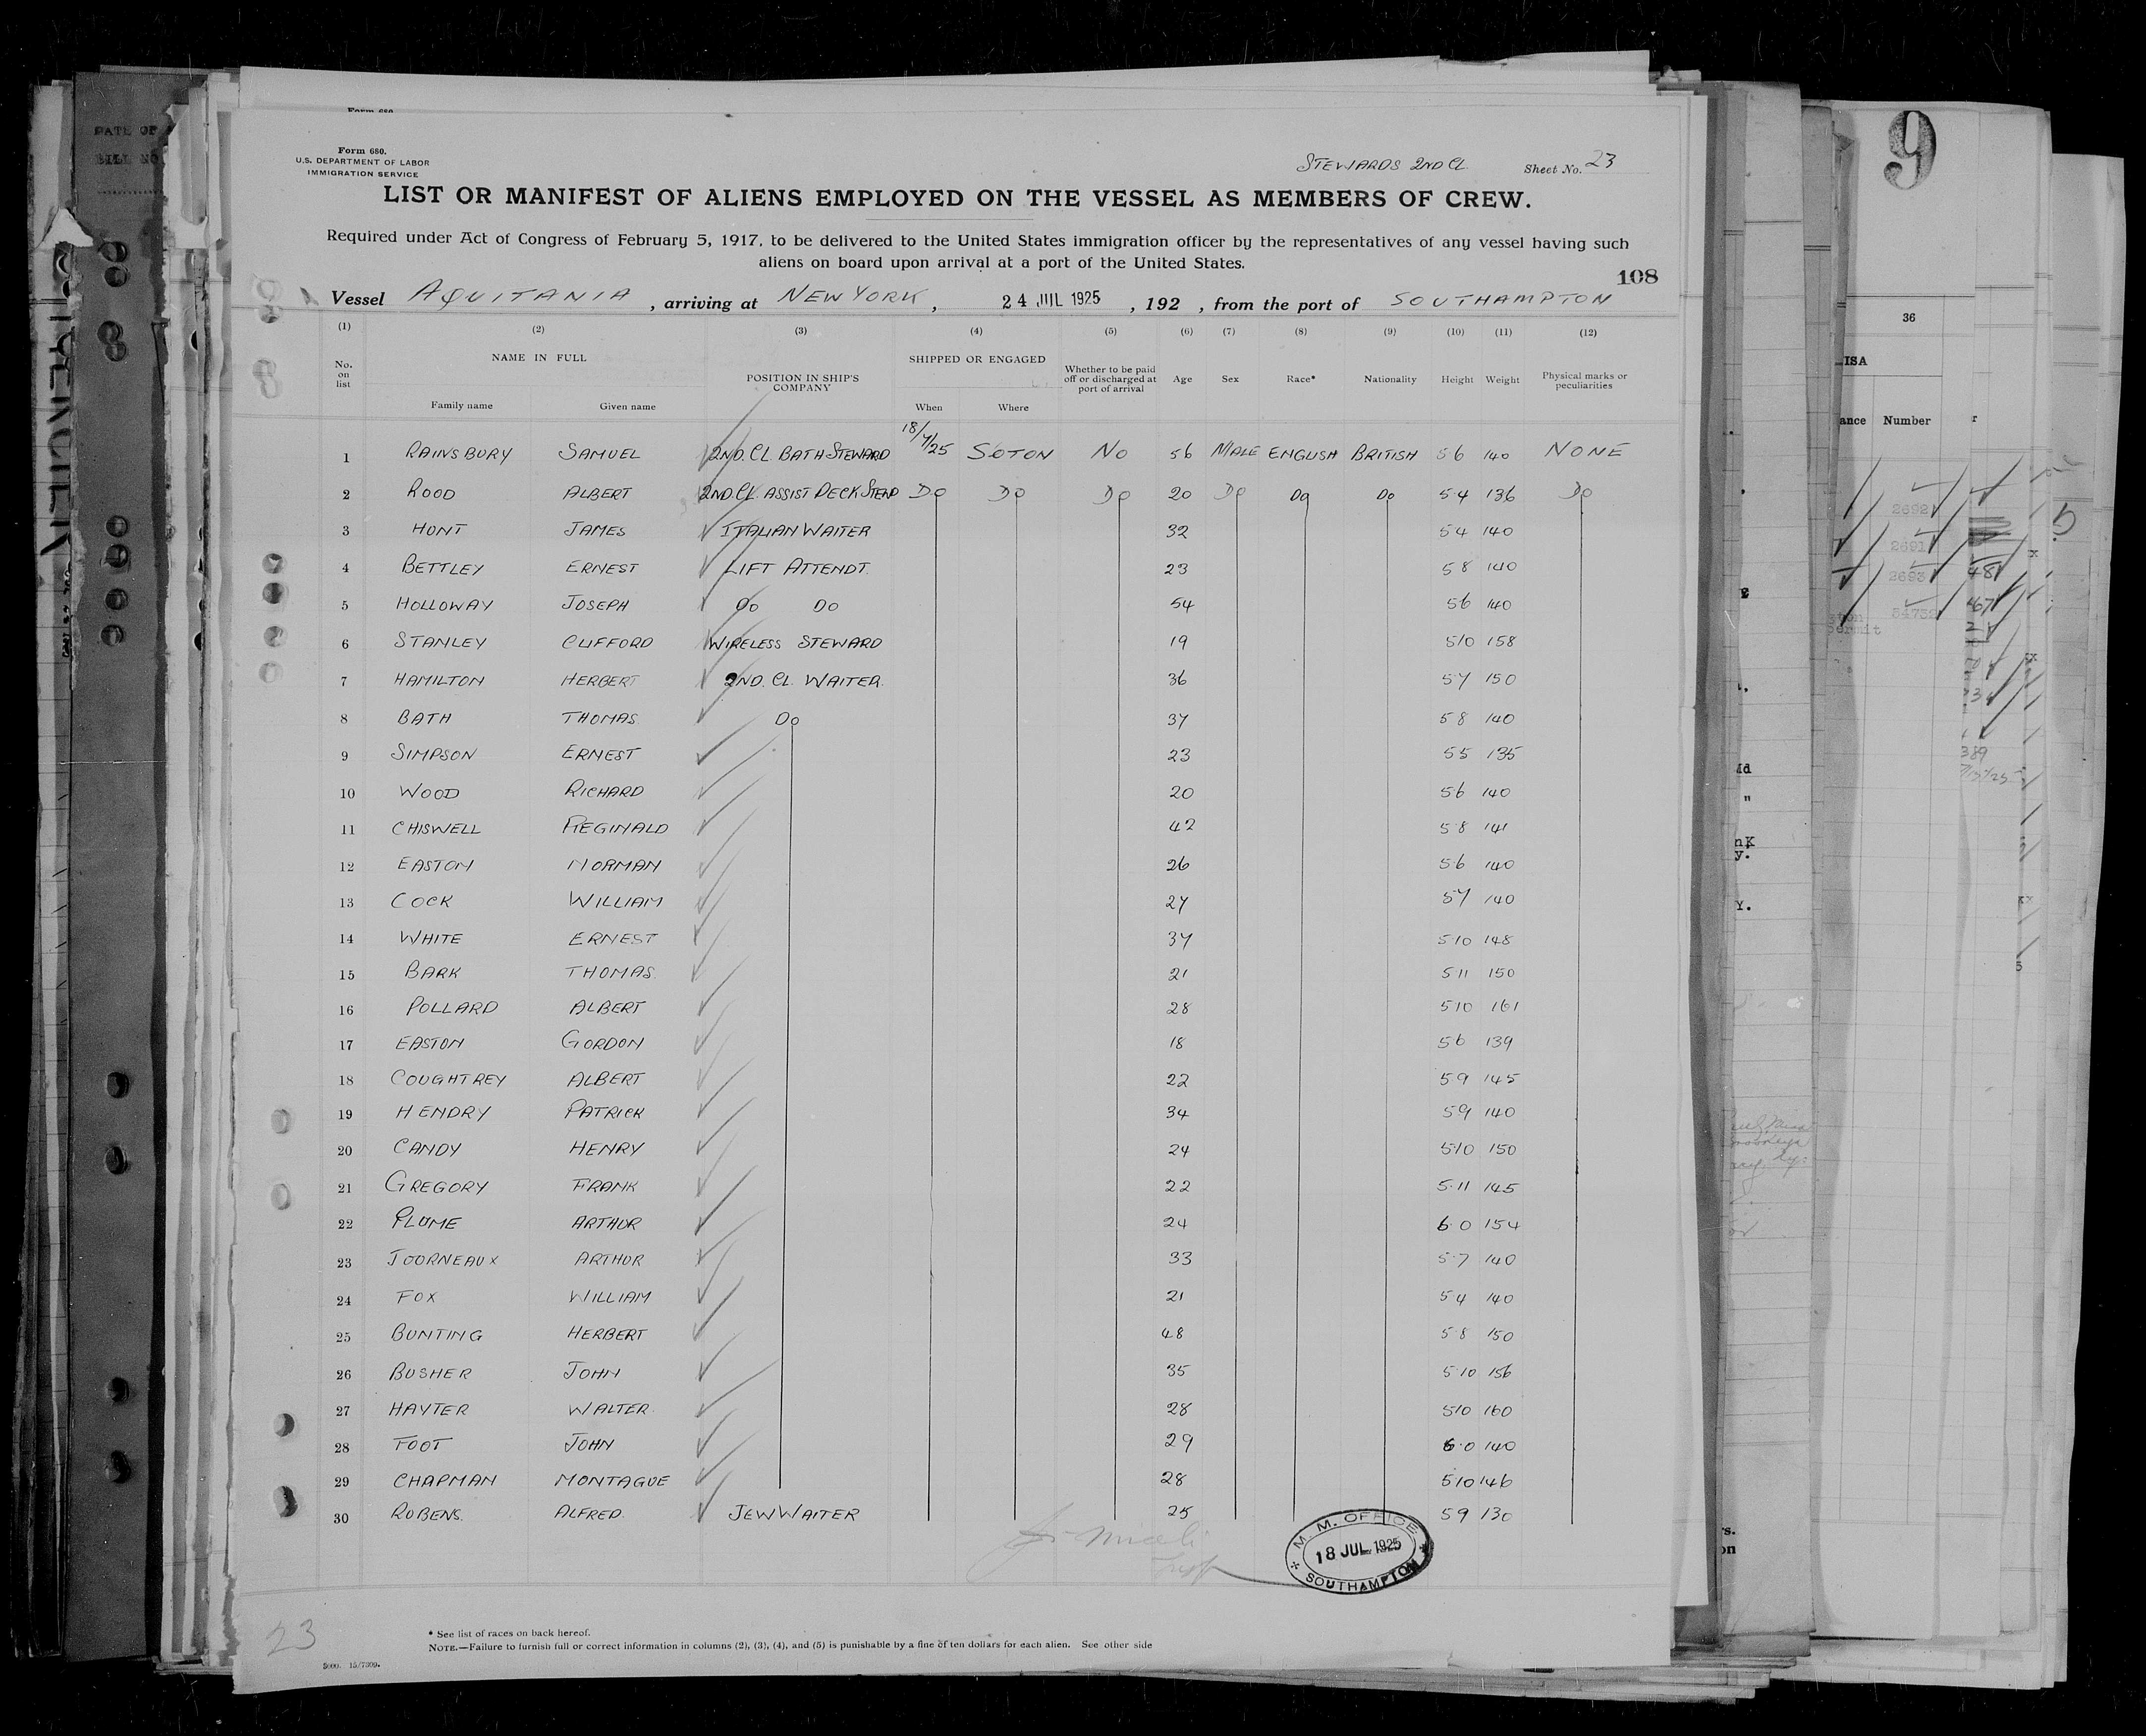 Form 680.
U.S. DEPARTMENT OF LABOR
IMMIGRATION SERVICE
STEWARDS 2ND CL. Sheet No. 23
LIST OR MANIFEST OF ALIENS EMPLOYED ON THE VESSEL AS MEMBERS OF CREW.
Required under Act of Congress of February 5, 1917, to be delivered to the United States immigration officer by the representatives of any vessel having such
aliens on board upon arrival at a port of the United States.
108
Vessel AQUITANIA, arriving at NEW YORK, 24 JUL 1925, 192 , from the port of SOUTHAMPTON
(1) (2) (3) (4) (5) (6) (7) (8) (9) (10) (11) (12)
No. on list NAME IN FULL Family name Given name POSITION IN SHIP'S COMPANY SHIPPED OR ENGAGED When Where Whether to be paid off or discharged at port of arrival Age Sex Race* Nationality Height Weight Physical marks or peculiarities
1 RAINSBURY SAMUEL 2ND. CL. BATH STEWARD 18/7/25 SOTON NO 56 MALE ENGLISH BRITISH 5 6 140 NONE
2 ROOD ALBERT 2ND. CL. ASSIST DECK STEWD DO DO DO 20 DO DO DO 5 4 136 DO
3 HUNT JAMES ITALIAN WAITER 32 5 4 140
4 BETTLEY ERNEST LIFT ATTENDT. 23 5 8 140
5 HOLLOWAY JOSEPH DO DO 54 5 6 140
6 STANLEY CLIFFORD WIRELESS STEWARD 19 5 10 158
7 HAMILTON HERBERT 2ND. CL. WAITER. 36 5 7 150
8 BATH THOMAS. DO 37 5 8 140
9 SIMPSON ERNEST 23 5 5 135
10 WOOD RICHARD 20 5 6 140
11 CHISWELL REGINALD 42 5 8 141
12 EASTON NORMAN 26 5 6 140
13 COCK WILLIAM 27 5 7 140
14 WHITE ERNEST 37 5 10 148
15 BARK THOMAS. 21 5 11 150
16 POLLARD ALBERT 28 5 10 161
17 EASTON GORDON 18 5 6 139
18 COUGHTREY ALBERT 22 5 9 145
19 HENDRY PATRICK 34 5 9 140
20 CANDY HENRY 24 5 10 150
21 GREGORY FRANK 22 5 11 145
22 PLUME ARTHUR 24 6 0 154
23 JOURNEAUX ARTHUR 33 5 7 140
24 FOX WILLIAM 21 5 4 140
25 BUNTING HERBERT 48 5 8 150
26 BUSHER JOHN 35 5 10 156
27 HAYTER WALTER. 28 5 10 160
28 FOOT JOHN 29 6 0 140
29 CHAPMAN MONTAGUE 28 5 10 146
30 RUBENS. ALFRED. JEW WAITER 25 5 9 130
M. M. OFFICE
18 JUL 1925
SOUTHAMPTON
23
* See list of races on back hereof.
NOTE.—Failure to furnish full or correct information in columns (2), (3), (4), and (5) is punishable by a fine of ten dollars for each alien. See other side
3000. 15/7309.
DATE OF
BILL NO
9
36
ISA
ance Number
2692
2691
2693
54732
ermit